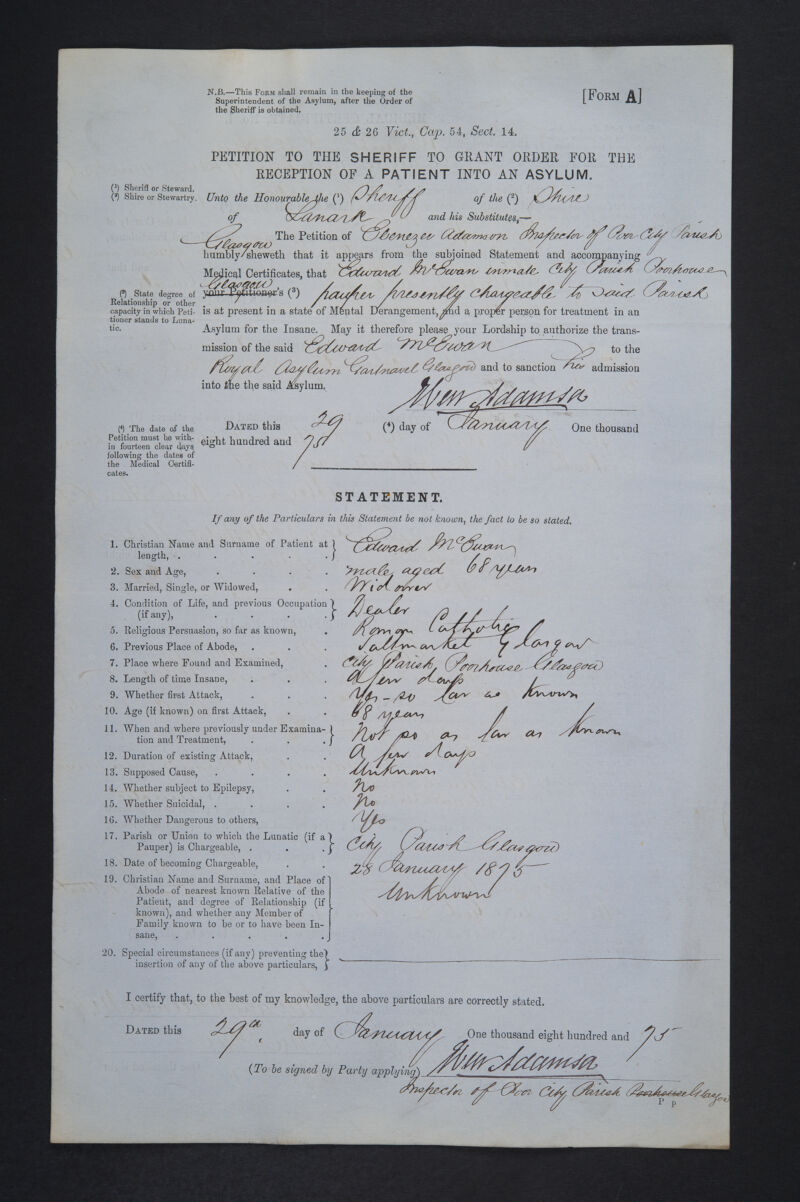 N.B.—This Form shall remain in the keeping of the
Superintendent of the Asylum, after the Order of
the Sheriff is obtained.
[Form A]
25 & 26 Vict., Cap. 54, Sect. 14.
PETITION TO THE SHERIFF TO GRANT ORDER FOR THE
RECEPTION OF A PATIENT INTO AN ASYLUM.
(¹) Sheriff or Steward.
(²) Shire or Stewartry.
Unto the Honourable the (¹) Sheriff of the (²) Shire
of Lanark and his Substitutes,—
The Petition of Ebenezer Adamson Inspector of Poor City Parish
Glasgow
humbly sheweth that it appears from the subjoined Statement and accompanying
Medical Certificates, that Edward McEwan inmate City Parish Poorhouse
Glasgow
(³) State degree of
Relationship or other
capacity in which Peti-
tioner stands to Luna-
tic.
your Petitioner's (³) pauper presently chargeable to said Parish
is at present in a state of Mental Derangement, and a proper person for treatment in an
Asylum for the Insane. May it therefore please your Lordship to authorize the trans-
mission of the said Edward McEwan to the
Royal Asylum Gartnavel Glasgow and to sanction his admission
into the the said Asylum.
Eben Adamson
(⁴) The date of the
Petition must be with-
in fourteen clear days
following the dates of
the Medical Certifi-
cates.
Dated this 29 (⁴) day of January One thousand
eight hundred and 75
STATEMENT.
If any of the Particulars in this Statement be not known, the fact to be so stated.
1. Christian Name and Surname of Patient at
length, . . . . . Edward McEwan
2. Sex and Age, . . . . male, aged 68 years
3. Married, Single, or Widowed, . . Widower
4. Condition of Life, and previous Occupation
(if any), . . . . . Dealer
5. Religious Persuasion, so far as known, . Roman Catholic
6. Previous Place of Abode, . . . Saltmarket Glasgow
7. Place where Found and Examined, . City Parish Poorhouse Glasgow
8. Length of time Insane, . . . A few days
9. Whether first Attack, . . . Yes - so far as known
10. Age (if known) on first Attack, . . 68 years
11. When and where previously under Examina-
tion and Treatment, . . . . Not so as far as known
12. Duration of existing Attack, . . A few days
13. Supposed Cause, . . . . Unknown
14. Whether subject to Epilepsy, . . No
15. Whether Suicidal, . . . . No
16. Whether Dangerous to others, . . Yes
17. Parish or Union to which the Lunatic (if a
Pauper) is Chargeable, . . . . City Parish Glasgow
18. Date of becoming Chargeable, . . 28 January 1875
19. Christian Name and Surname, and Place of
Abode of nearest known Relative of the
Patient, and degree of Relationship (if
known), and whether any Member of
Family known to be or to have been In-
sane, . . . . . Unknown
20. Special circumstances (if any) preventing the
insertion of any of the above particulars,
I certify that, to the best of my knowledge, the above particulars are correctly stated.
Dated this 29th day of January One thousand eight hundred and 75
(To be signed by Party applying) Eben Adamson
Inspector of Poor City Parish Poorhouse Glasgow
P P